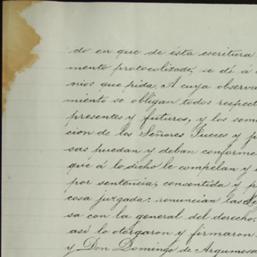 do en que de ésta escritura
mento protocolizado, se dé á
nios que pida; A cuya observa
miento se obligan todos respect
presentes y futuros, y los som
cion de los Señores Jueces y 
sas puedan y deban conforme
que á lo dicho le compelan y
por sentencia, consentida y p
cosa juzgada: renuncian las le
sa con la general del derecho.
así lo otorgaron y firmaron
y Don Domingo de Argumosa